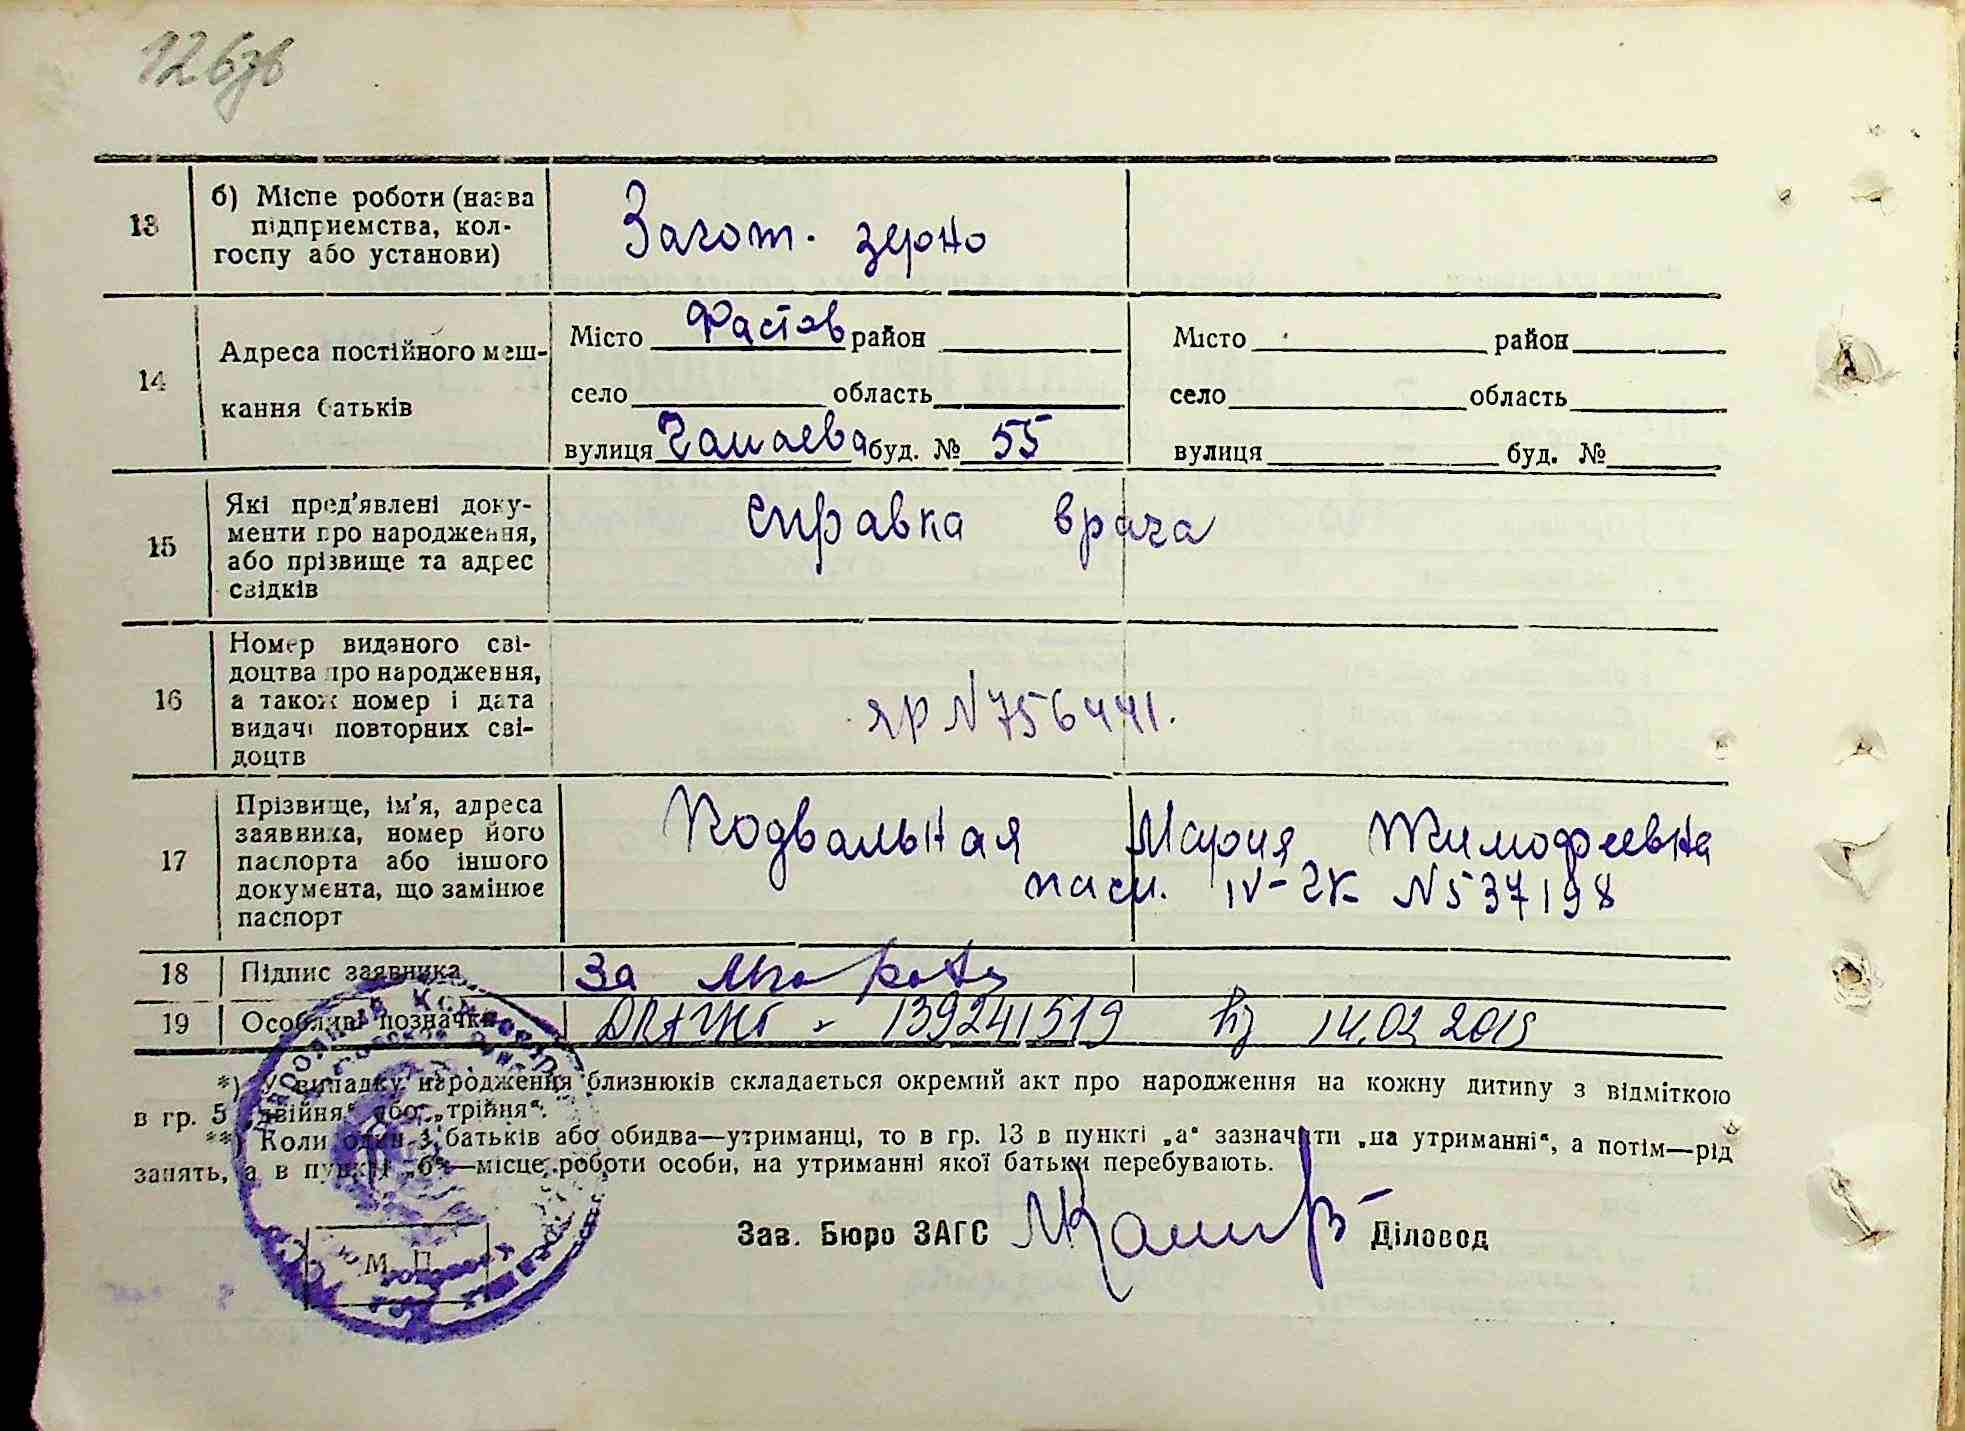 126зв
13 б) Місце роботи (назва Загот. зерно
підприємства, кол-
госпу або установи)
Місто Фастов район Місто район
14 Адреса постійного меш-
село область село область
кання батьків
вулиця Чапаева буд. № 55 вулиця буд. №
Які пред'явлені доку- Справка врача
менти про народження,
15 або прізвище та адрес
свідків
Номер виданого сві-
доцтва про народження,
16 а також номер і дата ЯР N 756441.
видачі повторних сві-
доцтв
Прізвище, ім'я, адреса Подвальная Мария Тимофеевна
заявника, номер його
17 паспорта або іншого пасп. IV-ЧК N 537198
документа, що замінює
паспорт
18 Підпис заявника За
19 Особливі позначки 139241519 14.02.2019
*) У випадку народження близнюків складається окремий акт про народження на кожну дитину з відміткою
в гр. 5 „двійня“ або „трійня“.
**) Коли один з батьків або обидва—утриманці, то в гр. 13 в пункті „а“ зазначити „на утриманні“, а потім—рід
занять, а в пункті „б“—місце роботи особи, на утриманні якої батьки перебувають.
Зав. Бюро ЗАГС Діловод
М. П.